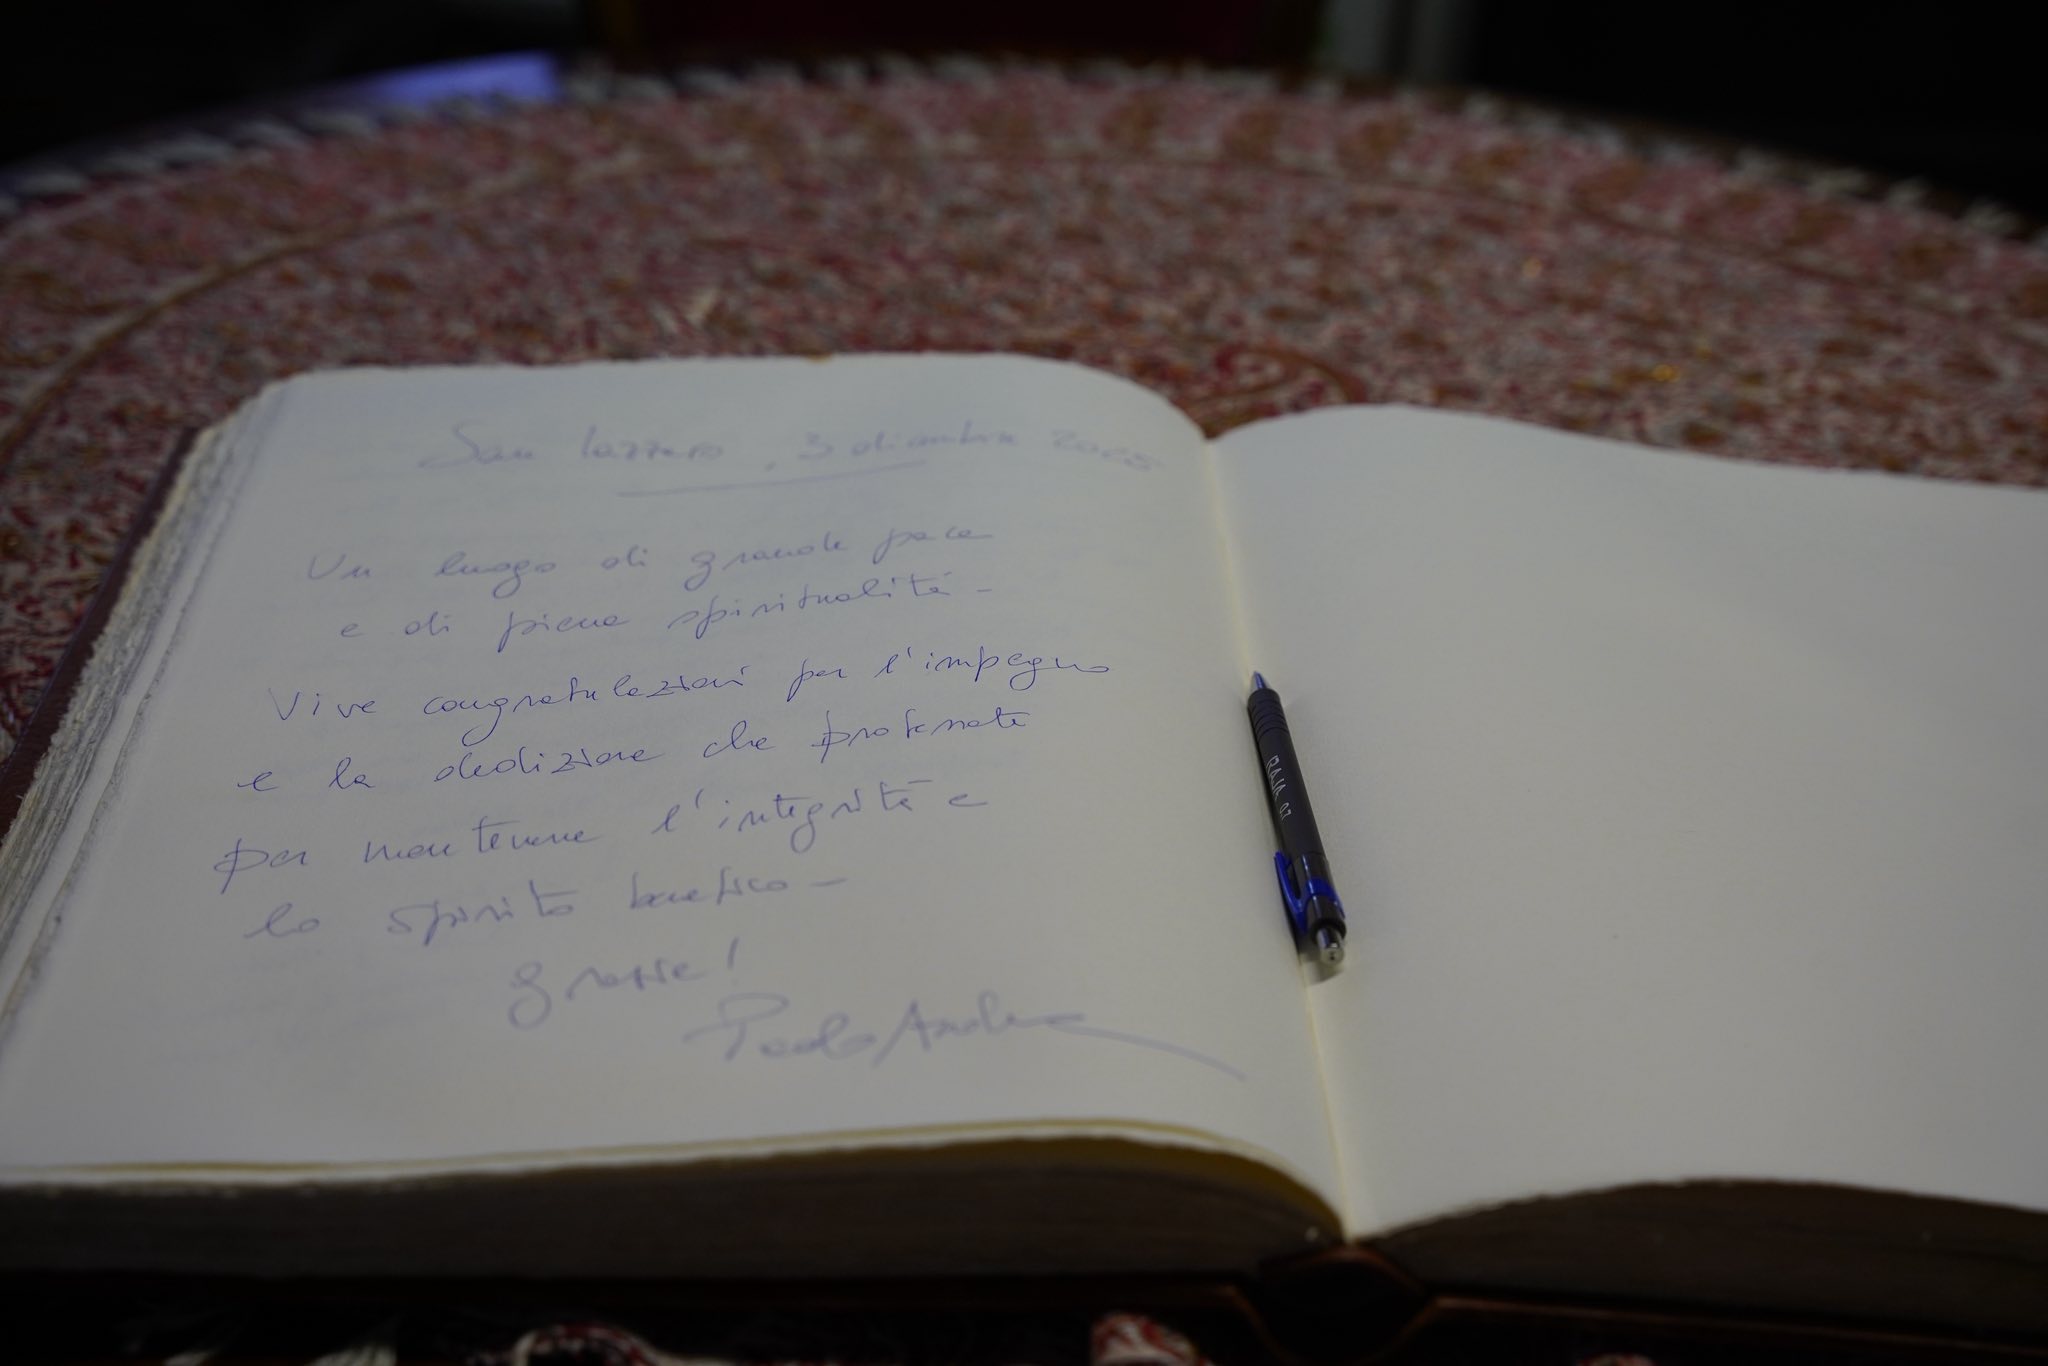 San Lazzaro, 3 dicembre 2025
Un luogo di grande pace
e di piena spiritualità -
Vive congratulazioni per l'impegno
e la dedizione che profernate
per mantenere l'integrità e
lo spirito benefico -
grazie!
Paolo Andrea
RAJA 07